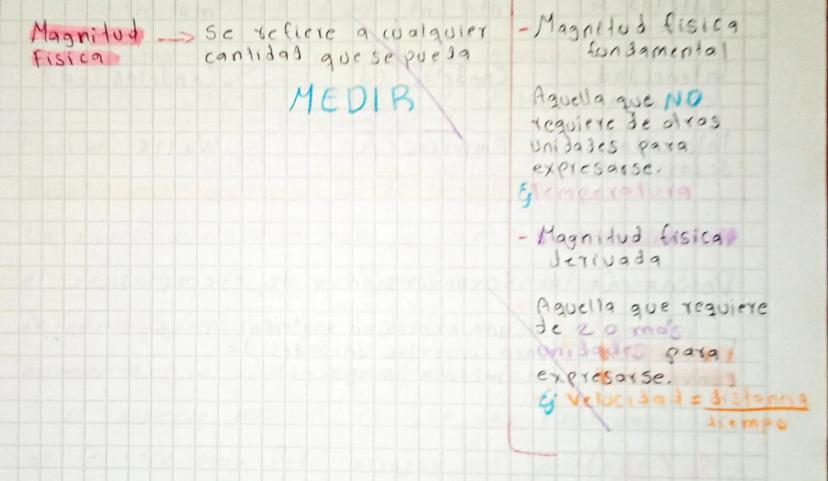 Magnitud
Física
→ Se refiere a cualquier
cantidad que se pueda
MEDIR
- Magnitud física
fundamental
Aquella que NO
requiere de otras
unidades para
expresarse.
Ej Temperatura
- Magnitud física
derivada
Aquella que requiere
de 2 o más
unidades para
expresarse.
Ej Velocidad = distanna
tiempo